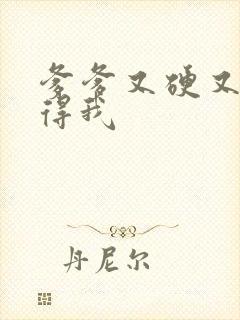 爹爹又硬又
得我
丹尼尔